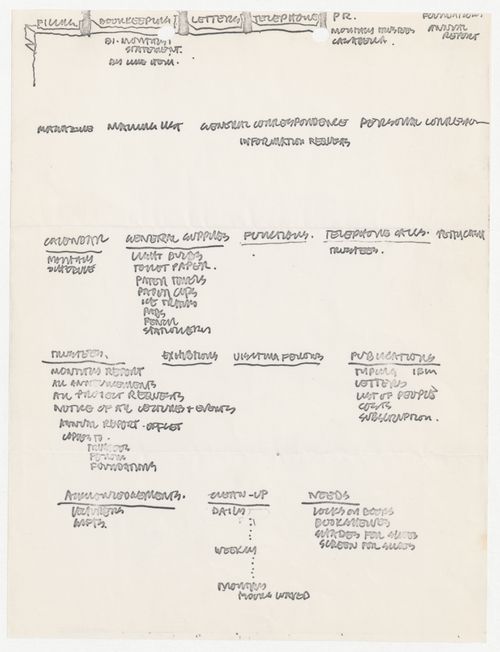 FILING BOOKKEEPING LETTERS TELEPHONE P.R. FOUNDATION.
BI-MONTHLY STATEMENT. BY LINE ITEM.
MONTHLY TRUSTEES
ANNUAL REPORT
MAGAZINE MAILING LIST GENERAL CORRESPONDENCE PERSONAL CORRESPON
INFORMATION REQUESTS
CALENDAR
MONTHLY
SCHEDULE
GENERAL SUPPLIES
LIGHT BULBS
TOILET PAPER.
PAPER TOWELS
PAPER CUPS
ICE TRAYS
PADS
PENCIL
STATIONERY
FUNCTIONS.
TELEPHONE CALLS.
TRUSTEES.
PETTY CASH
TRUSTEES.
MONTHLY REPORT
ALL ANNOUNCEMENTS
ALL PROJECT REQUESTS
NOTICE OF ALL LECTURES + EVENTS
ANNUAL REPORT - OFFSET
COPIES TO.
TRUSTEES
FELLOWS
FOUNDATIONS
EXHIBITIONS
VISITING FELLOWS
PUBLICATIONS
TYPING IBM
LETTERS
LIST OF PEOPLE
COSTS
SUBSCRIPTION.
ACKNOWLEDGEMENTS.
LECTURERS
GIFTS.
CLEAN-UP
DAILY
WEEKLY
MONTHLY
FLOORS WAXED
NEEDS
LOCKS ON DOORS
BOOKSHELVES
SHADES FOR SLIDES
SCREEN FOR SLIDES